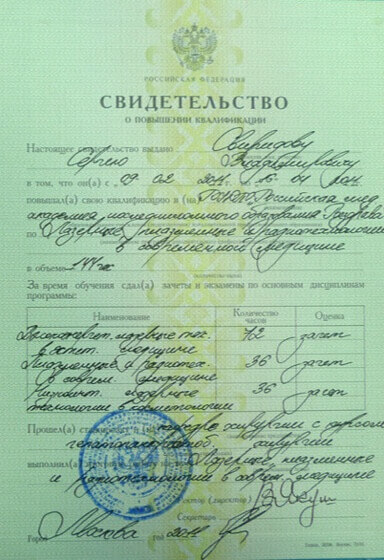 РОССИЙСКАЯ ФЕДЕРАЦИЯ
СВИДЕТЕЛЬСТВО
О ПОВЫШЕНИИ КВАЛИФИКАЦИИ
Настоящее свидетельство выдано Свиридову
Сергею Владимировичу
в том, что он(а) с «09» 02 2011 г. по 15 04 2011
повысил(а) свою квалификацию в (на) Российская мед.
академия последипломного образования Росздрава
по Лазерные, плазменные и радиотехнологии
в современной медицине
в объеме 144 час
За время обучения сдал(а) зачеты и экзамены по основным дисциплинам
программы:
Наименование Количество часов Оценка
лазерные тех. 72 зачет
в медицине
Плазменные и радиотех. 36 зачет
в соврем. медицине
лазерные 36 зачет
технологии в косметологии
Прошел(а) стажировку в (на) кафедре хирургии с курсом
хирургии
выполнил(а) Лазерные, плазменные
и радиотехнологии в соврем. медицине
Ректор (директор)
Секретарь
Город Москва год 2011